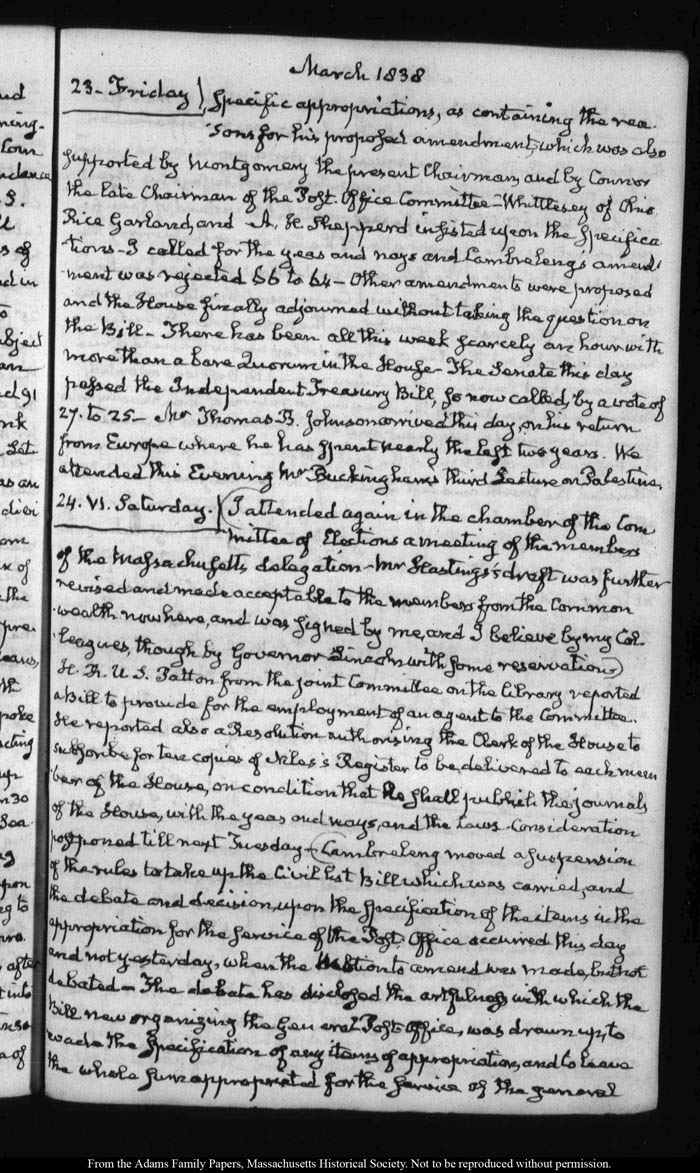 March 1838
23. Friday) Specific appropriations, as containing the rea-
sons for his proposed amendment, which was also
supported by Montgomery the present Chairman, and by Connor
the late Chairman of the Post Office Committee—Whittlesey of Ohio,
Rice Garland, and A. H. Shepperd insisted upon the Specifica
tions—I called for the yeas and nays and Cambreleng's amend
ment was rejected 56 to 64—Other amendments were proposed
and the House finally adjourned without taking the question on
the Bill—There has been all this week scarcely an hour with
more than a bare Quorum in the House—The Senate this day
passed the Independent Treasury Bill, so now called, by a vote of
27. to 25—Mr Thomas B. Johnson arrived this day, on his return
from Europe where he has spent nearly the last two years. We
attended this Evening Mr Buckingham's third Lecture on Palestine.
24. VI. Saturday. (I attended again in the chamber of the Com
mittee of Elections a meeting of the members
of the Massachusetts delegation—Mr Hastings's draft was further
revised and made acceptable to the members from the Common
wealth, now here, and was signed by me, and I believe by my Col-
leagues, though by Governor Lincoln with some reservation)
H. R. U. S. Patton from the joint Committee on the Library reported
a Bill to provide for the employment of an agent to the Committee.
He reported also a Resolution authorising the Clerk of the House to
subscribe for ten copies of Niles's Register to be delivered to each mem
ber of the House, on condition that he shall publish the journals
of the House, with the yeas and nays, and the Laws. Consideration
postponed till next Tuesday—(Cambreleng moved a suspension
of the rules to take up the Civil list Bill which was carried, and
the debate and decision, upon the specification of the items in the
appropriation for the service of the Post Office occurred this day
and not yesterday, when the motion to amend was made, but not
debated—The debate has disclosed the artfulness with which the
Bill new organizing the General Post-Office, was drawn up, to
evade the Specification of any items of appropriation, and to leave
the whole sum appropriated for the service of the general
From the Adams Family Papers, Massachusetts Historical Society. Not to be reproduced without permission.